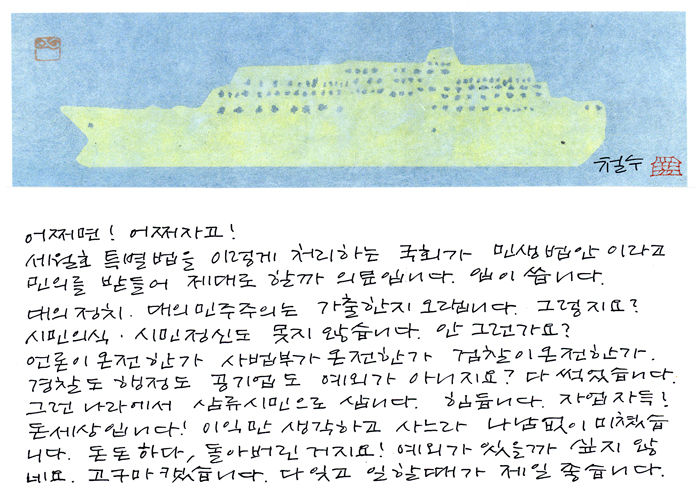 철수
어쩌면! 어쩌자고!
세월호 특별법을 이렇게 처리하는 국회가 민생법안이라고
민의를 받들어 제대로 할까 의문입니다. 입이 씁니다.
대의정치. 대의민주주의는 가출한지 오랩니다. 그렇지요?
시민의식·시민정신도 못지 않습니다. 안 그런가요?
언론이 온전한가 사법부가 온전한가 검찰이 온전한가.
경찰도 행정도 공기업도 예외가 아니지요? 다 썩었습니다.
그런 나라에서 삼류시민으로 삽니다. 힘듭니다. 자업자득!
돈세상입니다! 이익만 생각하고 사느라 나남없이 미쳤습
니다. 돈돈하다, 돌아버린 거지요! 예외가 있을까 싶지 않
네요. 고구마 캤습니다. 다 잊고 일할때가 제일 좋습니다.